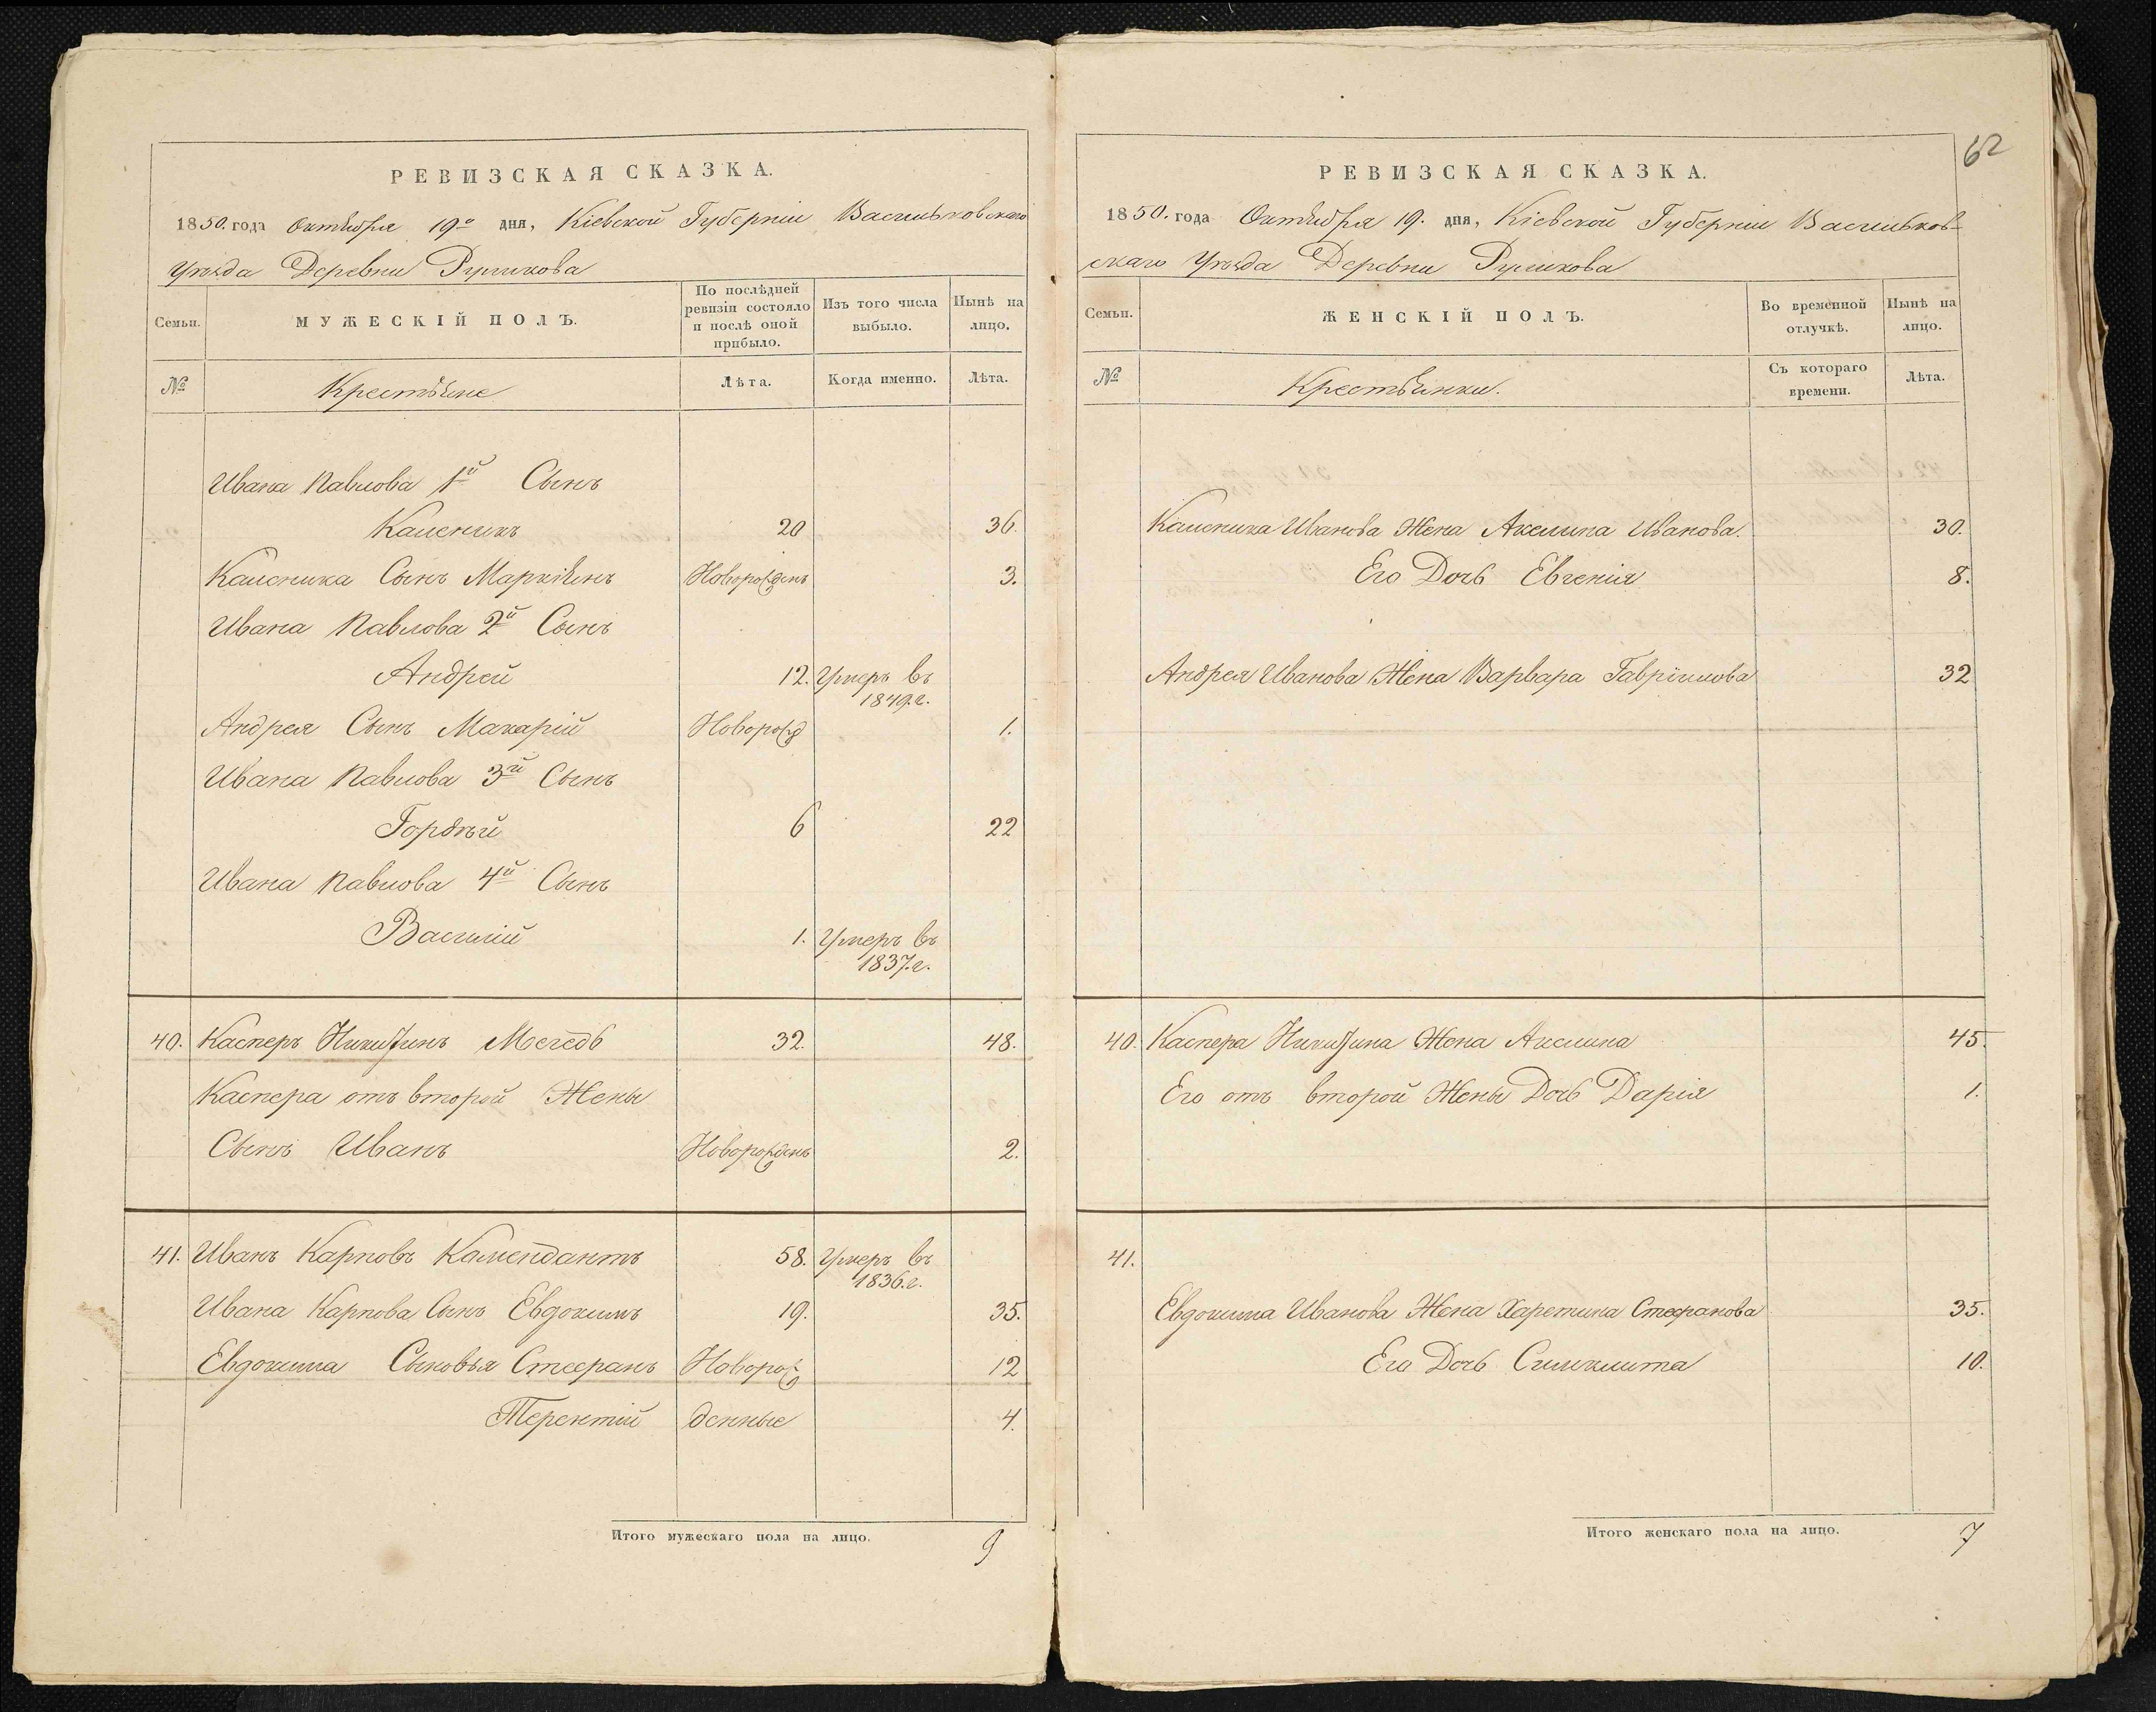 РЕВИЗСКАЯ СКАЗКА.
1850. года Октября 19го дня, Кіевской Губерніи Васильковскаго
Уѣзда Деревни Руликова
Семьи.
МУЖЕСКІЙ ПОЛЪ.
По послѣдней
ревизіи состояло
и послѣ оной
прибыло.
Изъ того числа
выбыло.
Нынѣ на
лицо.
№
Крестьяне
Лѣта.
Когда именно.
Лѣта.
Ивана Павлова 1й Сынъ
Каленикъ 20 36.
Каленика Сынъ Маркіянъ Новорожденъ 3.
Ивана Павлова 2й Сынъ
Андрей 12. Умеръ въ
1849.г.
Андрея Сынъ Макарій Новорожд 1.
Ивана Павлова 3й Сынъ
Гордѣй 6 22
Ивана Павлова 4й Сынъ
Василій 1. Умеръ въ
1837.г.
40. Касперъ Никитинъ Мегедь 32. 48.
Каспера отъ второй Жены
Сынъ Иванъ Новорожденъ 2.
41. Иванъ Карповъ Комендантъ 58. Умеръ въ
1836.г.
Ивана Карпова Сынъ Евдокимъ 19. 35.
Евдокима Сыновья Стефанъ Новорож 12
Терентій денные 4.
Итого мужескаго пола на лицо. 9
62
РЕВИЗСКАЯ СКАЗКА.
1850. года Октября 19. дня, Кіевской Губерніи Васильков-
скаго Уѣзда Деревни Руликова
Семьи.
ЖЕНСКІЙ ПОЛЪ.
Во временной
отлучкѣ.
Нынѣ на
лицо.
№
Крестьянки.
Съ котораго
времени.
Лѣта.
Каленика Иванова Жена Акелина Иванова. 30.
Его Дочь Евгенія 8.
Андрея Иванова Жена Варвара Гавріилова 32
40. Каспера Никитина Жена Акелина 45.
Его отъ второй Жены Дочь Дарія 1.
41.
Евдокима Иванова Жена Харетина Стефанова 35.
Его Дочь Синклита 10.
Итого женскаго пола на лицо. 7